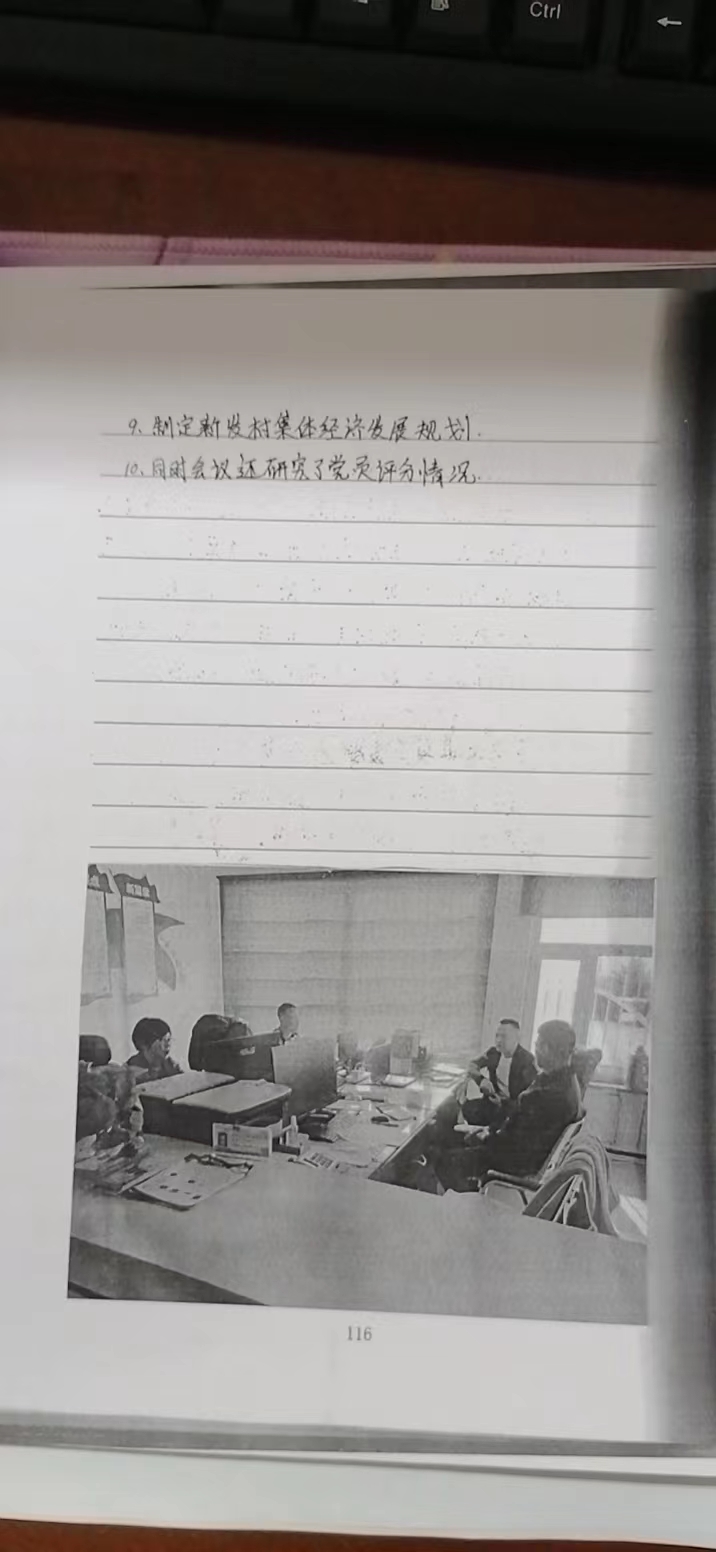 Ctrl
←
9、制定新发村集体经济发展规划.
10、同时会议还研究了党员评分情况.
116